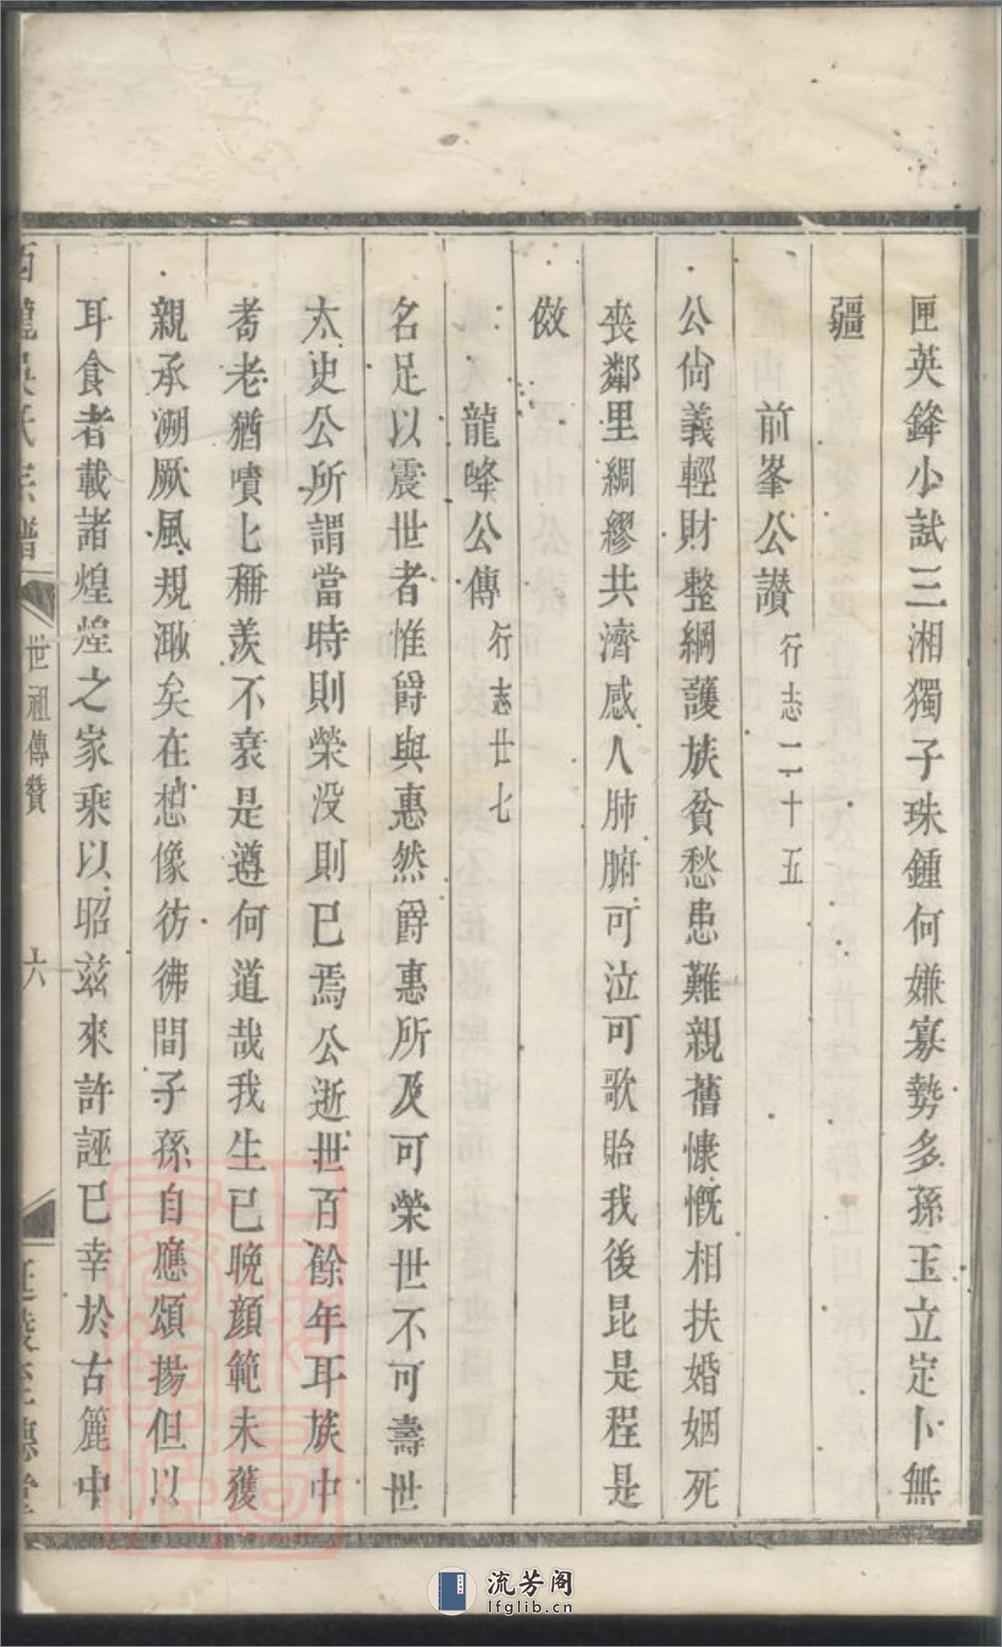 匣英鋒小試三湘獨子珠鍾何嫌寡勢多孫玉立定卜無
疆
前峯公讃 行志二十五
公尙義輕財整綱護族貧愁患難親舊慷慨相扶婚姻死
喪鄰里綢繆共濟感人肺腑可泣可歌貽我後昆是程是
倣
龍峰公傳 行志廿七
名足以震世者惟爵與惠然爵惠所及可榮世不可壽世
太史公所謂當時則榮没則已焉公逝世百餘年耳族中
耈老猶嘖匕稱羨不衰是遵何道哉我生已晚顔範未獲
親承溯厥風規渺矣在想像彷彿間子孫自應頌揚但以
耳食者載諸煌煌之家乘以昭兹來許誣已幸於古簏中
吳氏宗譜
世祖傳贊
六
至德堂
流芳阁
lfglib.cn